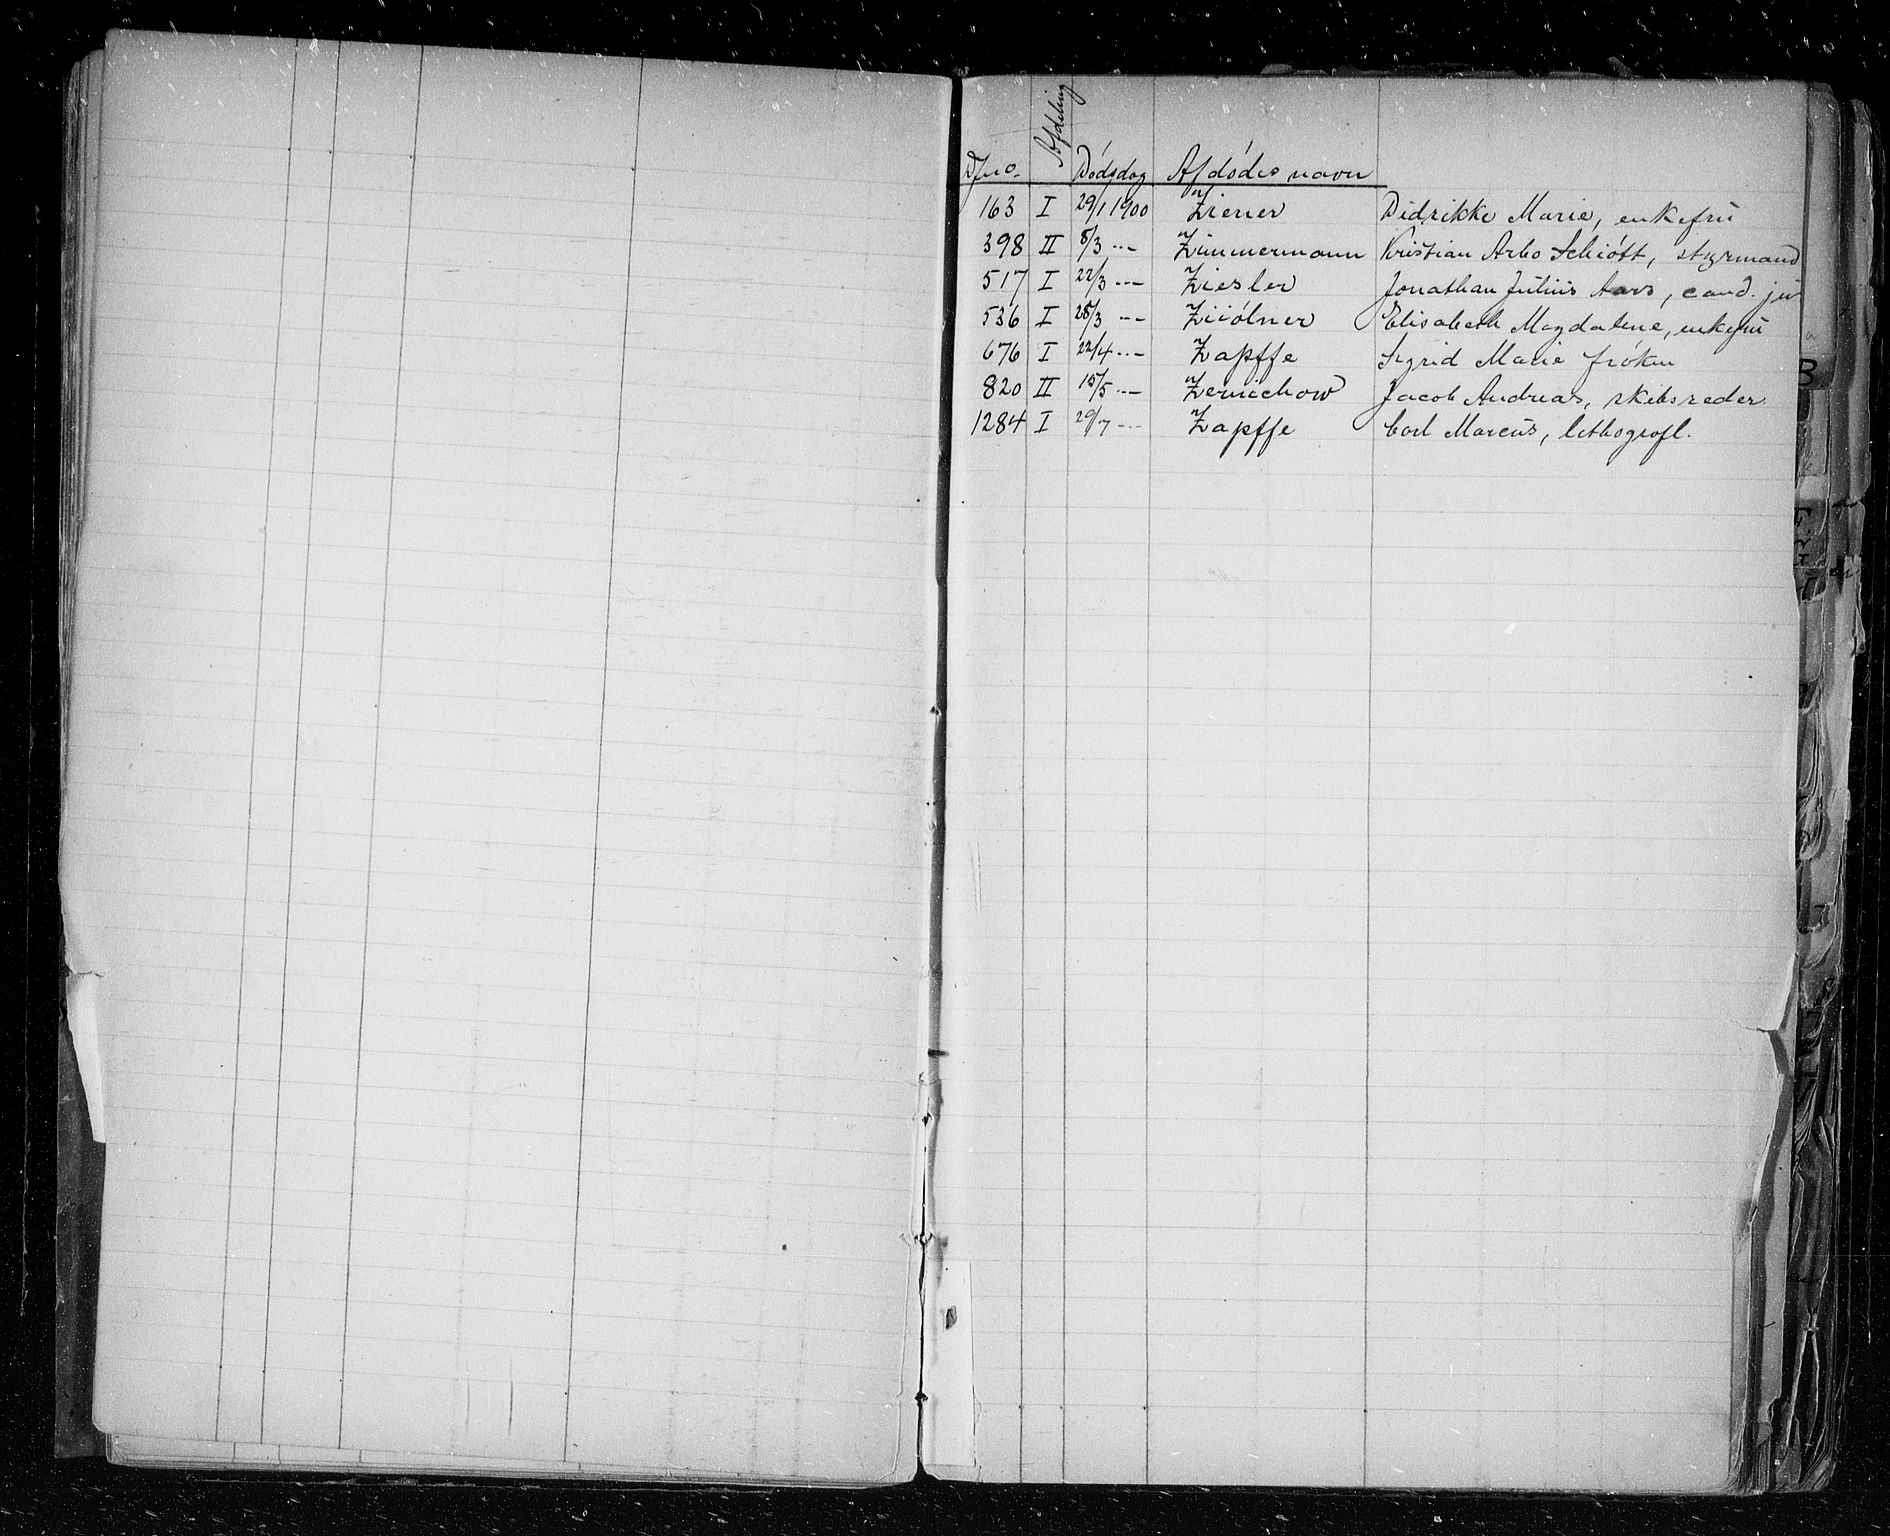 Afdeling
D/no. Dódsdag Afdódes navn
163 I 29/1 1900 Ziener Didrikke Marie, enkefrú
398 II 8/3 --- Zimmermann Kristian Arbo Schiótt, styrmand
517 I 22/3 --- Ziesler Jonathan Július Aars, cand. jur
536 I 28/3 --- Ziiólner Elisabeth Magdalene, enkefrú
676 I 22/4 --- Zapffe Sigrid Marie fróken
820 II 15/5 --- Zernichow Jacob Andreas, skibsreder
1284 I 29/7 --- Zapffe Carl Marcús, lithograf.
B